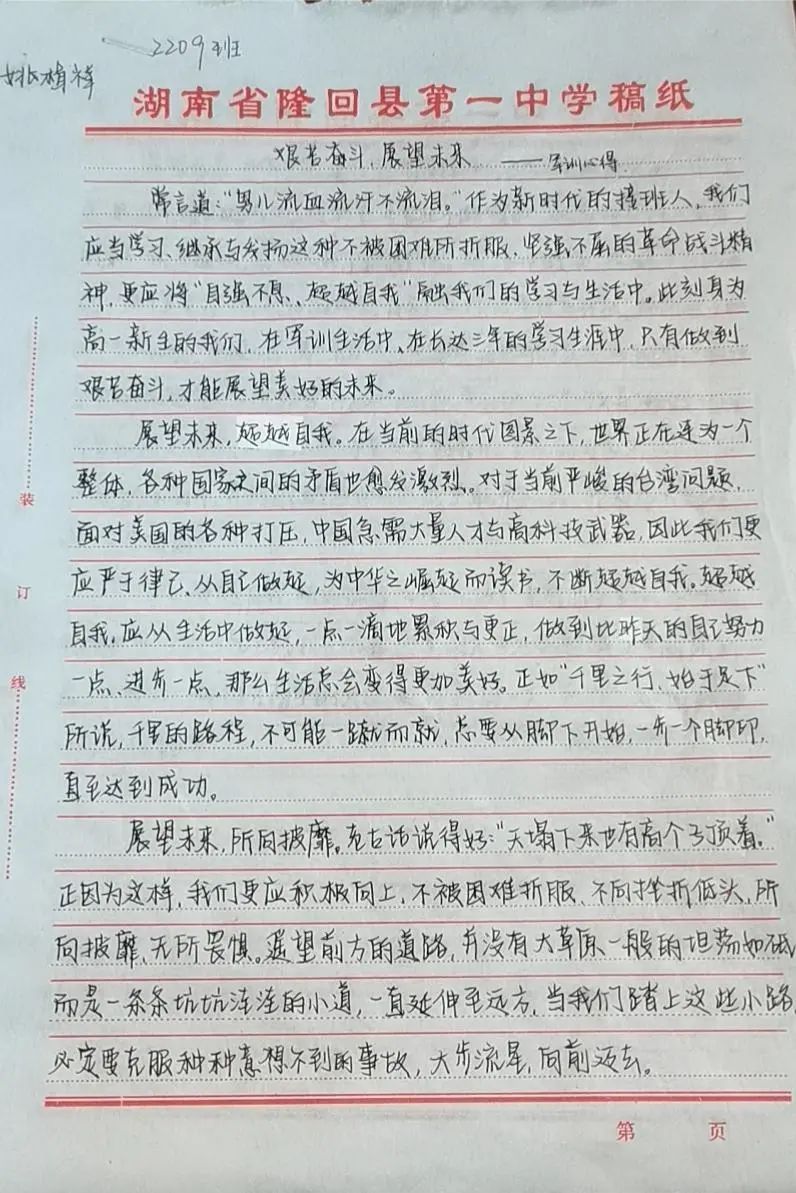 2209班
姚植祥
湖南省隆回县第一中学稿纸
艰苦奋斗,展望未来 ——军训心得
常言道:“男儿流血流汗不流泪。”作为新时代的接班人,我们
应当学习、继承与发扬这种不被困难所折服、坚强不屈的革命战斗精
神,更应将“自强不息、超越自我”融出我们的学习与生活中。此刻身为
高一新生的我们,在军训生活中、在长达三年的学习生涯中,只有做到
艰苦奋斗,才能展望美好的未来。
展望未来,超越自我。在当前的时代图景之下,世界正在连为一个
整体,各种国家之间的矛盾也愈发激烈。对于当前严峻的台湾问题,
面对美国的各种打压,中国急需大量人才与高科技武器,因此我们更
应严于律己、从自己做起,为中华之崛起而读书,不断超越自我。超越
自我,应从生活中做起,一点一滴地累积与更正,做到比昨天的自己努力
一点、进步一点,那么生活总会变得更加美好。正如“千里之行、始于足下”
所说,千里的路程,不可能一蹴而就,总要从脚下开始,一步一个脚印,
直至达到成功。
展望未来,所向披靡。有古话说得好:“天塌下来也有高个子顶着。”
正因为这样,我们更应积极向上,不被困难折服、不向挫折低头,所
向披靡、无所畏惧。遥望前方的道路,并没有大草原一般的坦荡如砥
而是一条条坑坑洼洼的小道,一直延伸至远方,当我们踏上这些小路,
必定要克服种种意想不到的事故,大步流星,向前迈去。
装
订
线
第 页